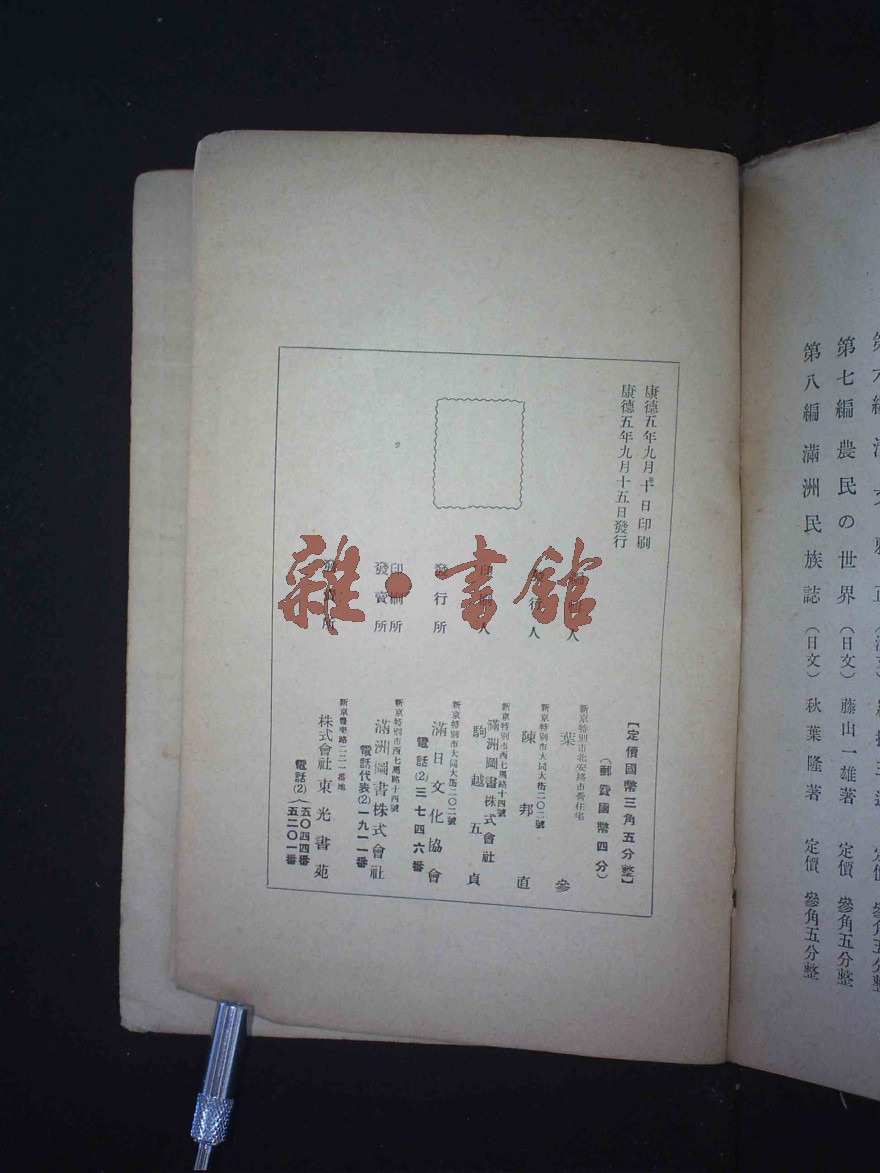 第七編 農民の世界 (日文) 藤山一雄著 定價 參角五分整
第八編 滿洲民族誌 (日文) 秋葉隆著 定價 參角五分整
康德五年九月十日印刷
康德五年九月十五日發行
【定價國幣三角五分整】
(郵費國幣四分)
新京特別市北安路市營住宅
人 葉參
新京特別市大同大街二〇二號
發行人 陳邦直
新京特別市西七馬路十四號
滿洲圖書株式會社
印刷人 駒越五貞
新京特別市大同大街二〇二號
發行所 滿日文化協會
電話(2)三七四六番
新京特別市西七馬路十四號
印刷所
發賣所 滿洲圖書株式會社
電話代表(2)一九一一番
新京豐樂路二二一番地
發賣所 株式會社 東光書苑
電話(2)五〇四四番
五二〇一番
雜·書館